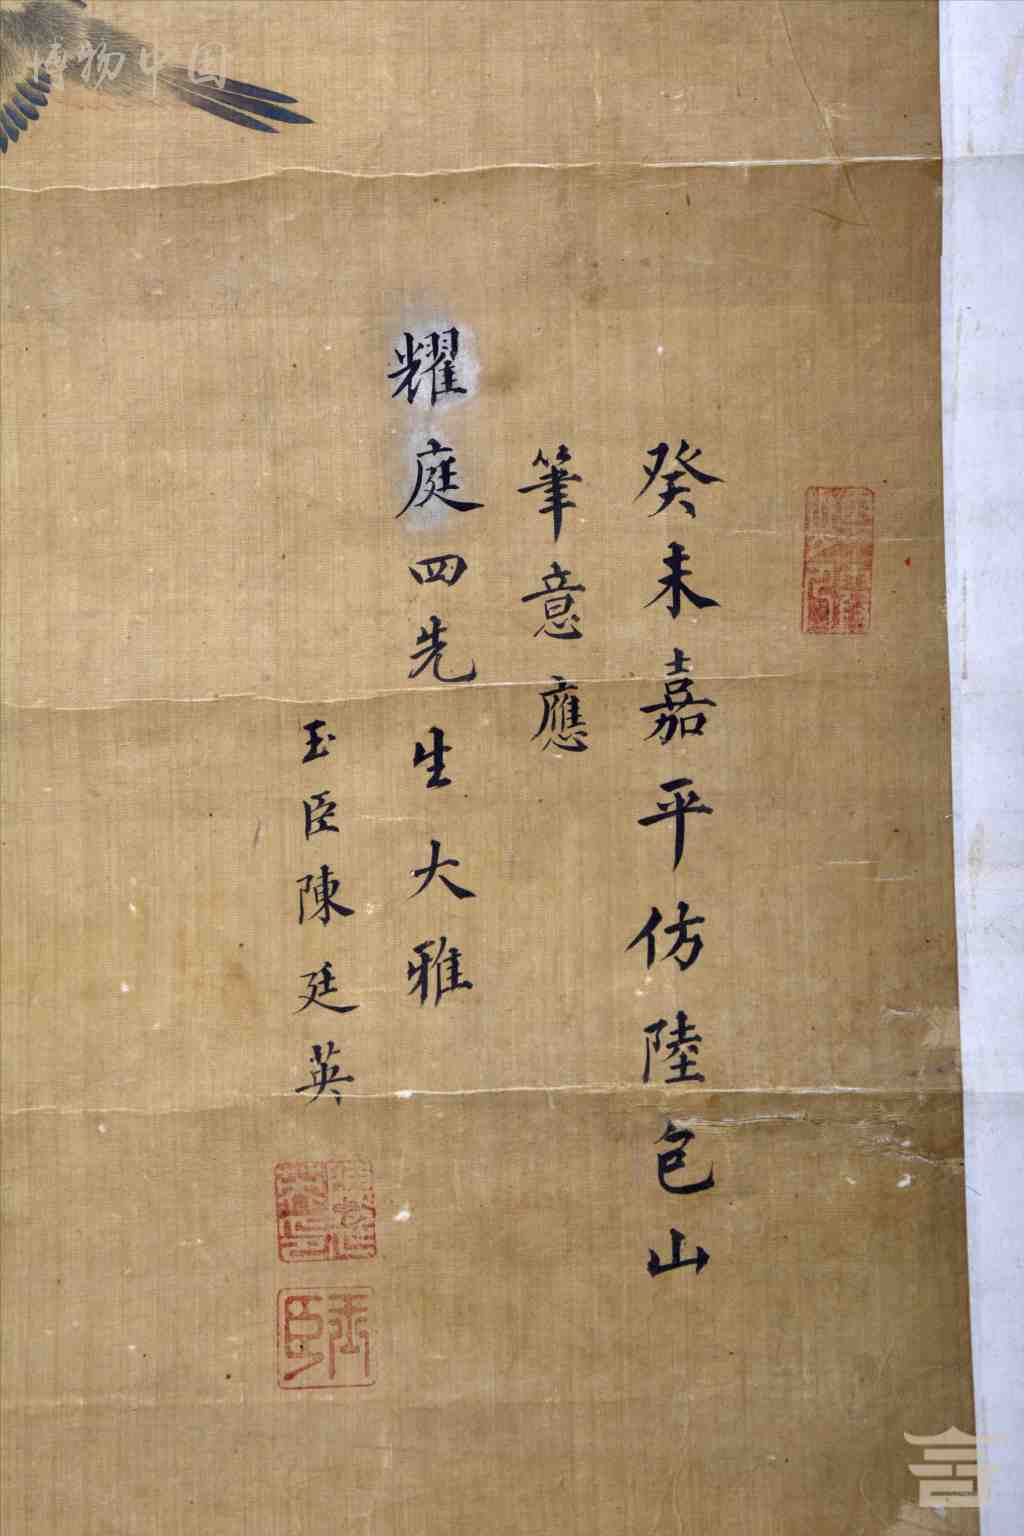 癸未嘉平仿陸包山
筆意應
耀庭四先生大雅
玉臣陳廷英
博物中国